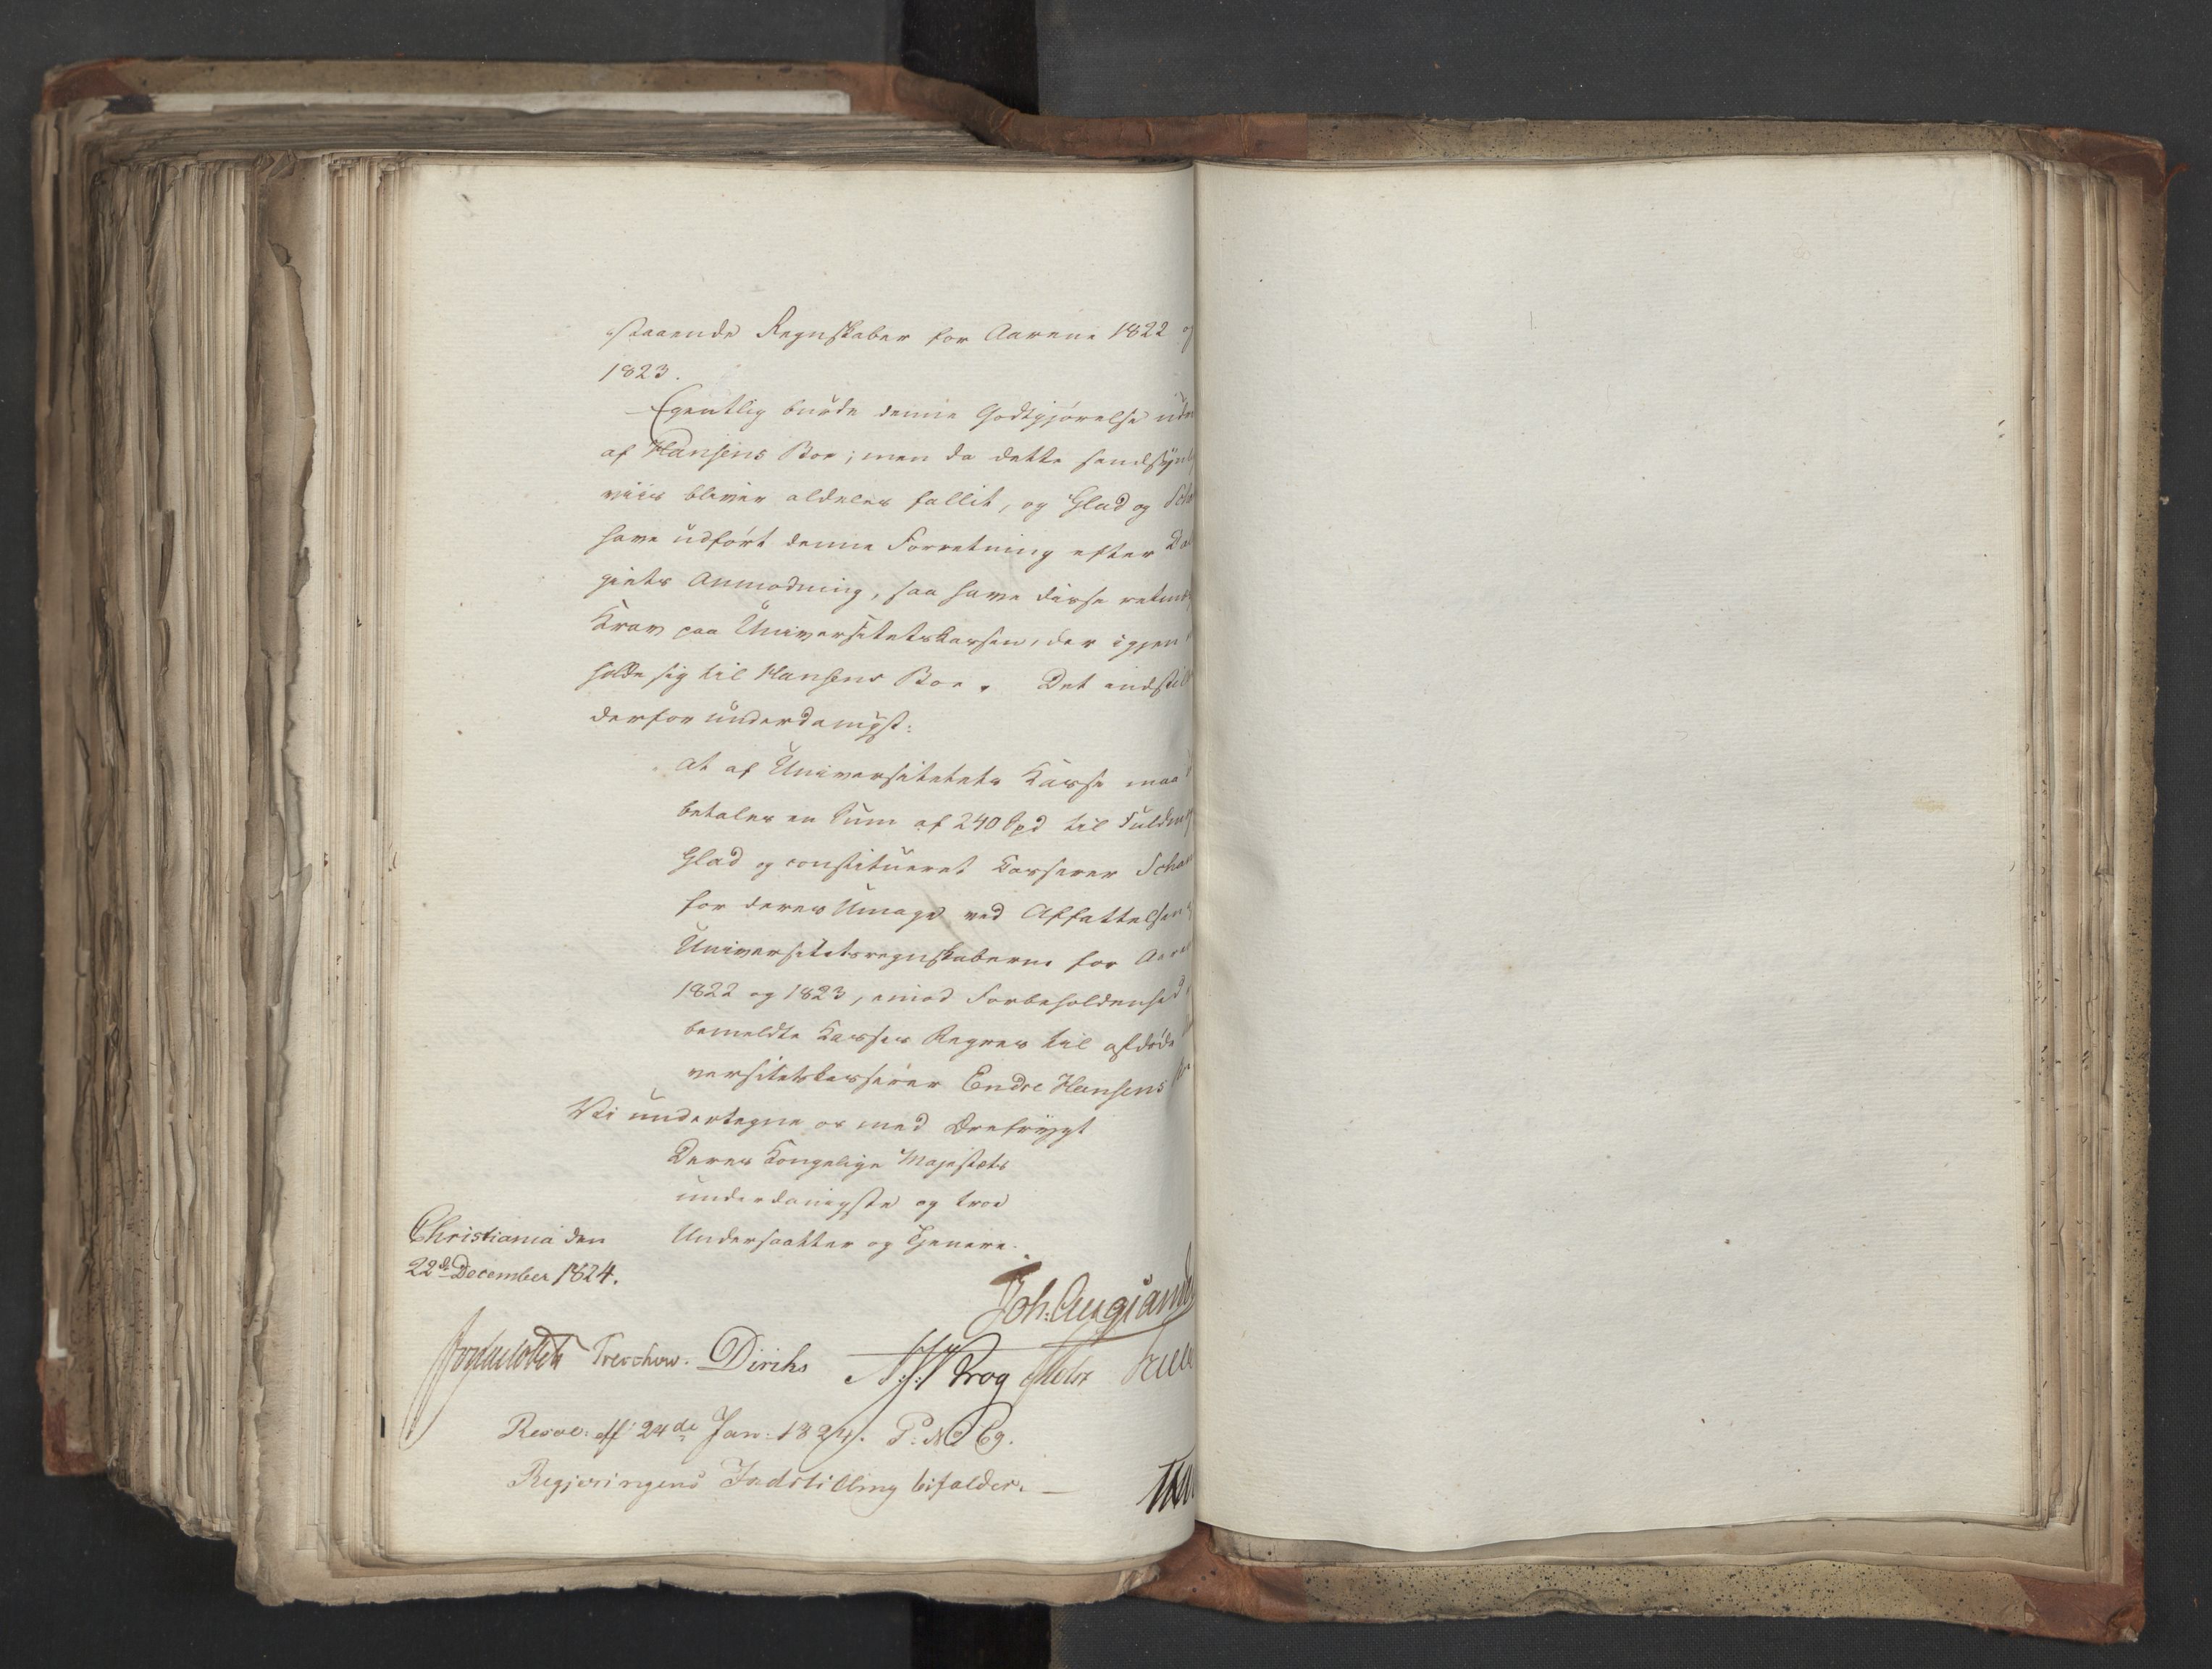 staaende Regnskaber for Aarene 1822 og
1823.
Egentlig burde denne Godtgjørelse ude
af Hansens Boe; men da dette sandsynl
viis bliver aldeles fallit, og Glad og Sch
have udført denne Forretning efter Col
giets Anmodning, saa have disse retmæ
Krav paa Universitetskassen, der igjen
holde sig til Hansens Boe. Det indstill
derfor underdanigst:
at af Universitetets Kasse maa
betales en Sum af 240 Spd til Fuldm
Glad og constitueret Kasserer Scha
for deres Umage ved Affattelsen
Universitetsregnskaberne for Aare
1822 og 1823, imod Forbeholdenhed
bemeldte Kasses Regres til afdøde
versitetskasserer Endre Hansens
Vi undertegne os med Ærefrygt
Deres Kongelige Majestæts
underdanigste og troe
Christiania den Undersaatter og Tjenere.
22de December 1824.
Joh. Aug. Sand
Treschow. Diriks Krog
Resol: af 24de Jan: 1824. P: No 69.
Regjeringens Indstilling bifaldes. —